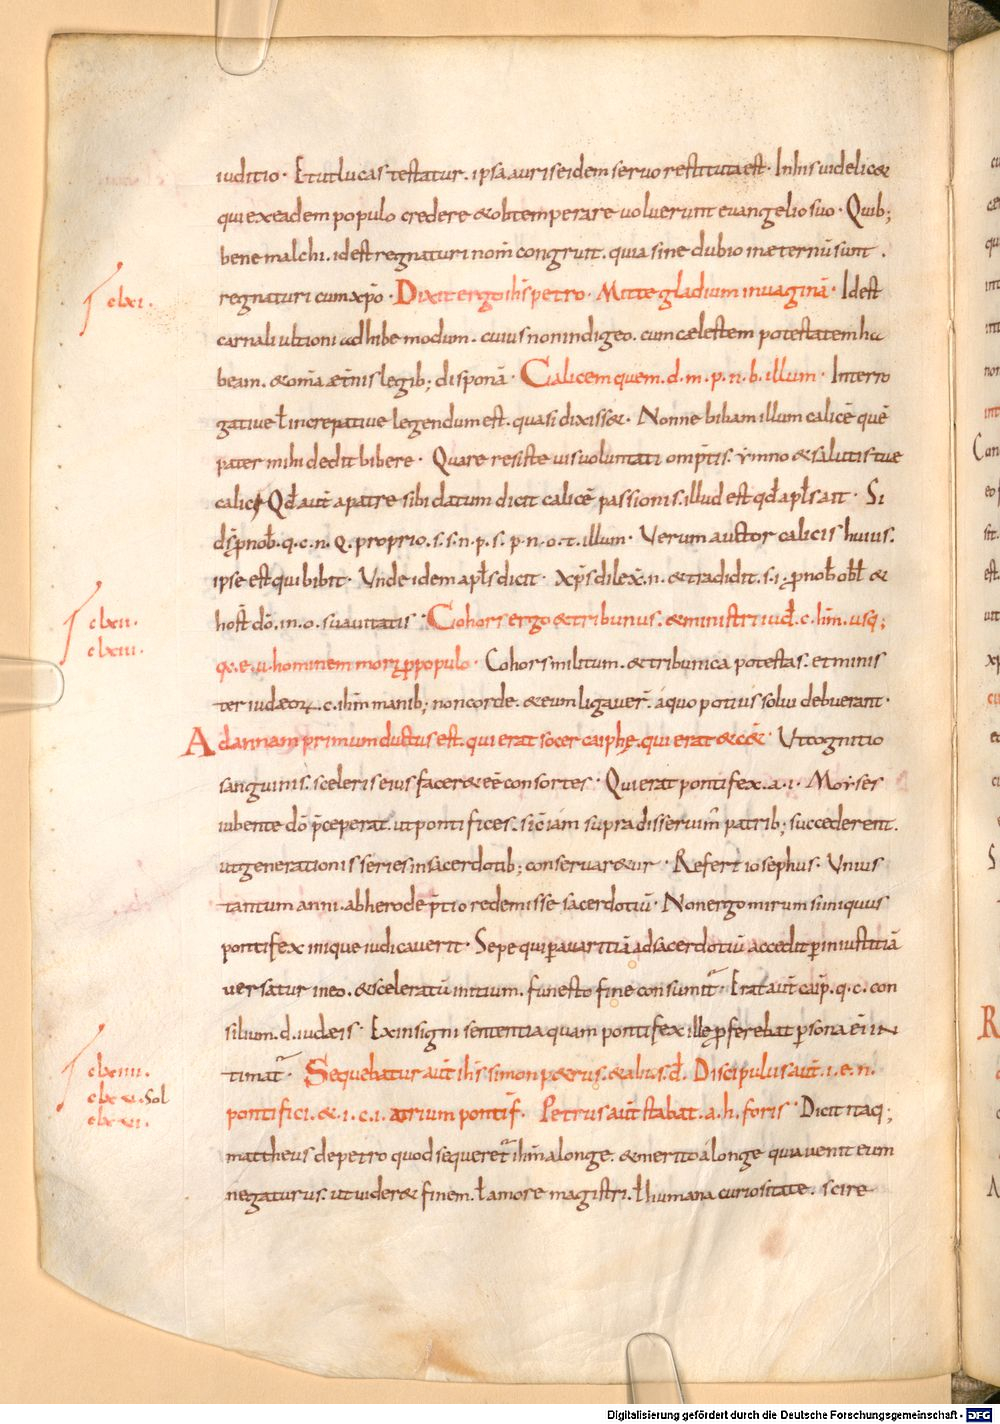 iuditio. Et ut lucas testatur. ipsa auris eidem seruo restituta est. In his uidelic&
qui ex eadem populo credere & obtemperare uoluerunt euangelio suo. Quib;
bene malchi. id est regnaturi nom̄ congruit. quia sine dubio in æternū sunt.
clxi.
regnaturi cum xp̄o. Dixit ergo ih̄s petro. Mitte gladium in uaginā. Id est
carnali ultioni adhibe modum. cuius non indigeo. cum cælestem potestatem ha
beam. & om̄a æt̄nis legib; disponā. Calicem quem. d. m. p. n. b. illum. Interro
gatiue ł increpatiue legendum est. quasi dixiss&. Nonne bibam illum calicē quē
pater mihi dedit bibere. Quare resiste uis uoluntati omp̄tis. ymno & salutis tue
calici Qđ aūt a patre sibi datum dicit calicē passionis. illud est qđ apłs ait. Si
ds̄ p nob̄. q. c. n. Q. proprio. s. s. n. p. s. p. n. o. t. illum. Verum auctor calicis huius.
ipse est qui bibit. Vnde idem apłs dicit. Xp̄s dilex̄. n. & tradidit. s. i. p nob̄ obł &
clxii.
host̄ dō. in. o. suauitatis. Cohors ergo & tribunus. & ministri iuđ. c. ih̄m. usq;
clxiii.
q. e. u. hominem mori p populo. Cohors militum. & tribunica potestas. et minis
ter iudæoꝝ. c. ih̄m manib; non corde. & eum ligauer̄. a quo potius solui debuerant.
Ad annam primum ductus est. qui erat socer caiphę. qui erat & c&̄. Vt cognitio
sanguinis. sceleris eius facer& eē consortes. Qui erat pontifex. a. i. Moyses
iubente dō p̄ceperat. ut pontifices. sic̄ iam supra disseruim᷒ patrib; succederent.
ut generationis series in sacerdotib; conseruar&ur. Refert iosephus. Vnius
tantum anni. ab herode p̄tio redemisse sacerdotiū. Non ergo mirum si iniquus
pontifex inique iudicauerit. Sepe qui p̱ auaritiā ad sacerdotiū accedit p̱ iniustitiā
uersatur in eo. & sceleratū initium. funesto fine consumit᷑. Erat aūt caip̄. q. c. con
silium. d. iudæis. Ex insigni sententia quam pontifex ille p ferebat p̱sona ei in
clxiiii.
timat᷑. Sequebatur aūt ih̄s simon p&rus. & alius. đ. Discipulus aūt. i. e. n.
clxxv. Sol
pontifici. &. i. c. i. atrium pontif̄. Petrus aūt stabat. a. h. foris. Dicit itaq;
clxxvi.
mattheus de petro quod sequeret᷑ ih̄m a longe. & merito a longe quia uenit eum
negaturus. ut uider& finem. ł amore magistri. ł humana curiositate. scire
Digitalisierung gefördert durch die Deutsche Forschungsgemeinschaft - DFG